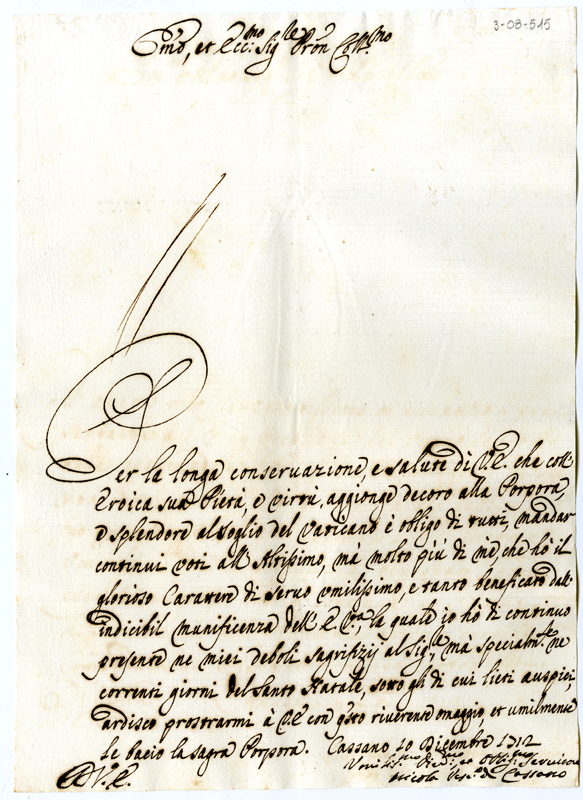 3-08-515
Em̃o, et Ecc:mo Sig:le Prõn Coll:mo
Per la longa conseruazione, e salute di V.E. che coll'
Eroica sua Pietà, e virtù, aggionge decoro alla Porpora,
e splendore al Soglio del Vaticano è obligo di tutti, mandar
continui voti all'Altissimo, mà molto più di mè, che hò il
glorioso Carattere di seruo vmilissimo, e tanto beneficato dall'
indicibil munificenza dell'E.V.a, la quale io hò di continuo
presente ne miei deboli sagrifizij al Sig.re, mà specialm.te ne
correnti giorni del Santo Natale, sotto gli di cui lieti auspici,
ardisco prostrarmi à V.E. con q̃sto riuerente omaggio, et umilmente
le bacio la sagra Porpora. Cassano 10 Dicembre 1712
Vmilis.mo Diu.mo et Oblig.mo Seruitore
Nicola Vesc.o di Cassano
A V.E.